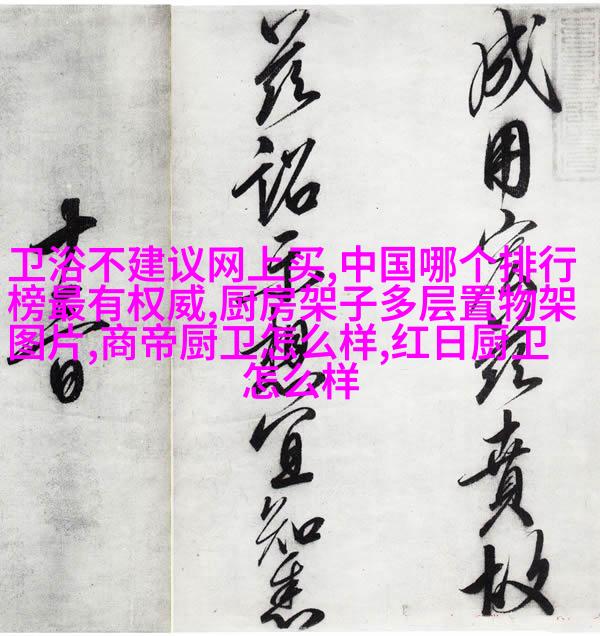 卫浴不建议网上买,中国哪个排行
榜最有权威,厨房架子多层置物架
图片,商帝厨卫怎么样,红日厨卫
怎么样
成用寓茲賁故
茲詔示想宜知悉